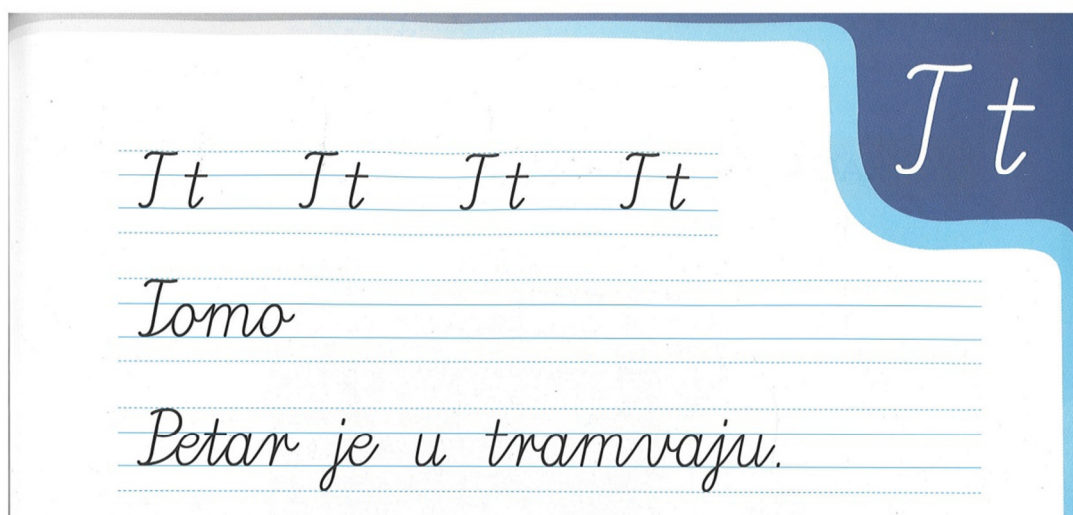 T t
T t T t T t T t
Tomo
Petar je u tramvaju.